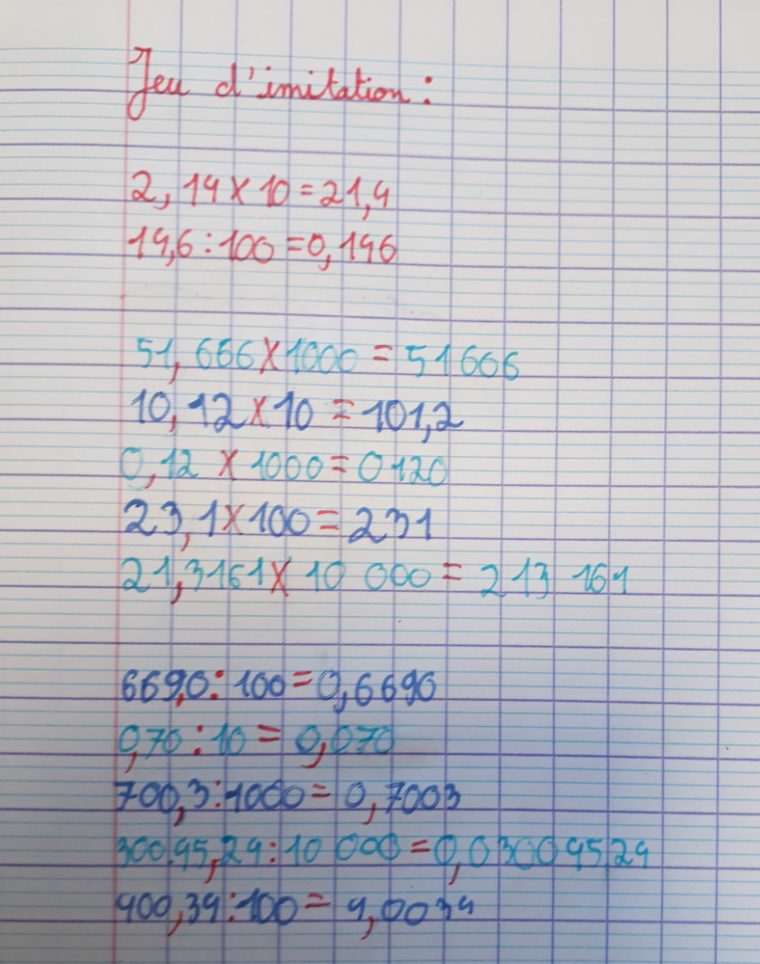 Jeu d'imitation :
2,14 x 10 = 21,4
14,6 : 100 = 0,146
51,666 x 1000 = 51666
10,12 x 10 = 101,2
0,12 x 1000 = 0120
23,1 x 100 = 231
21,3161 x 10 000 = 213 161
669,0 : 100 = 0,6690
0,70 : 10 = 0,070
700,3 : 1000 = 0,7003
300.95,24 : 10 000 = 0,030095,24
400,34 : 100 = 4,0034